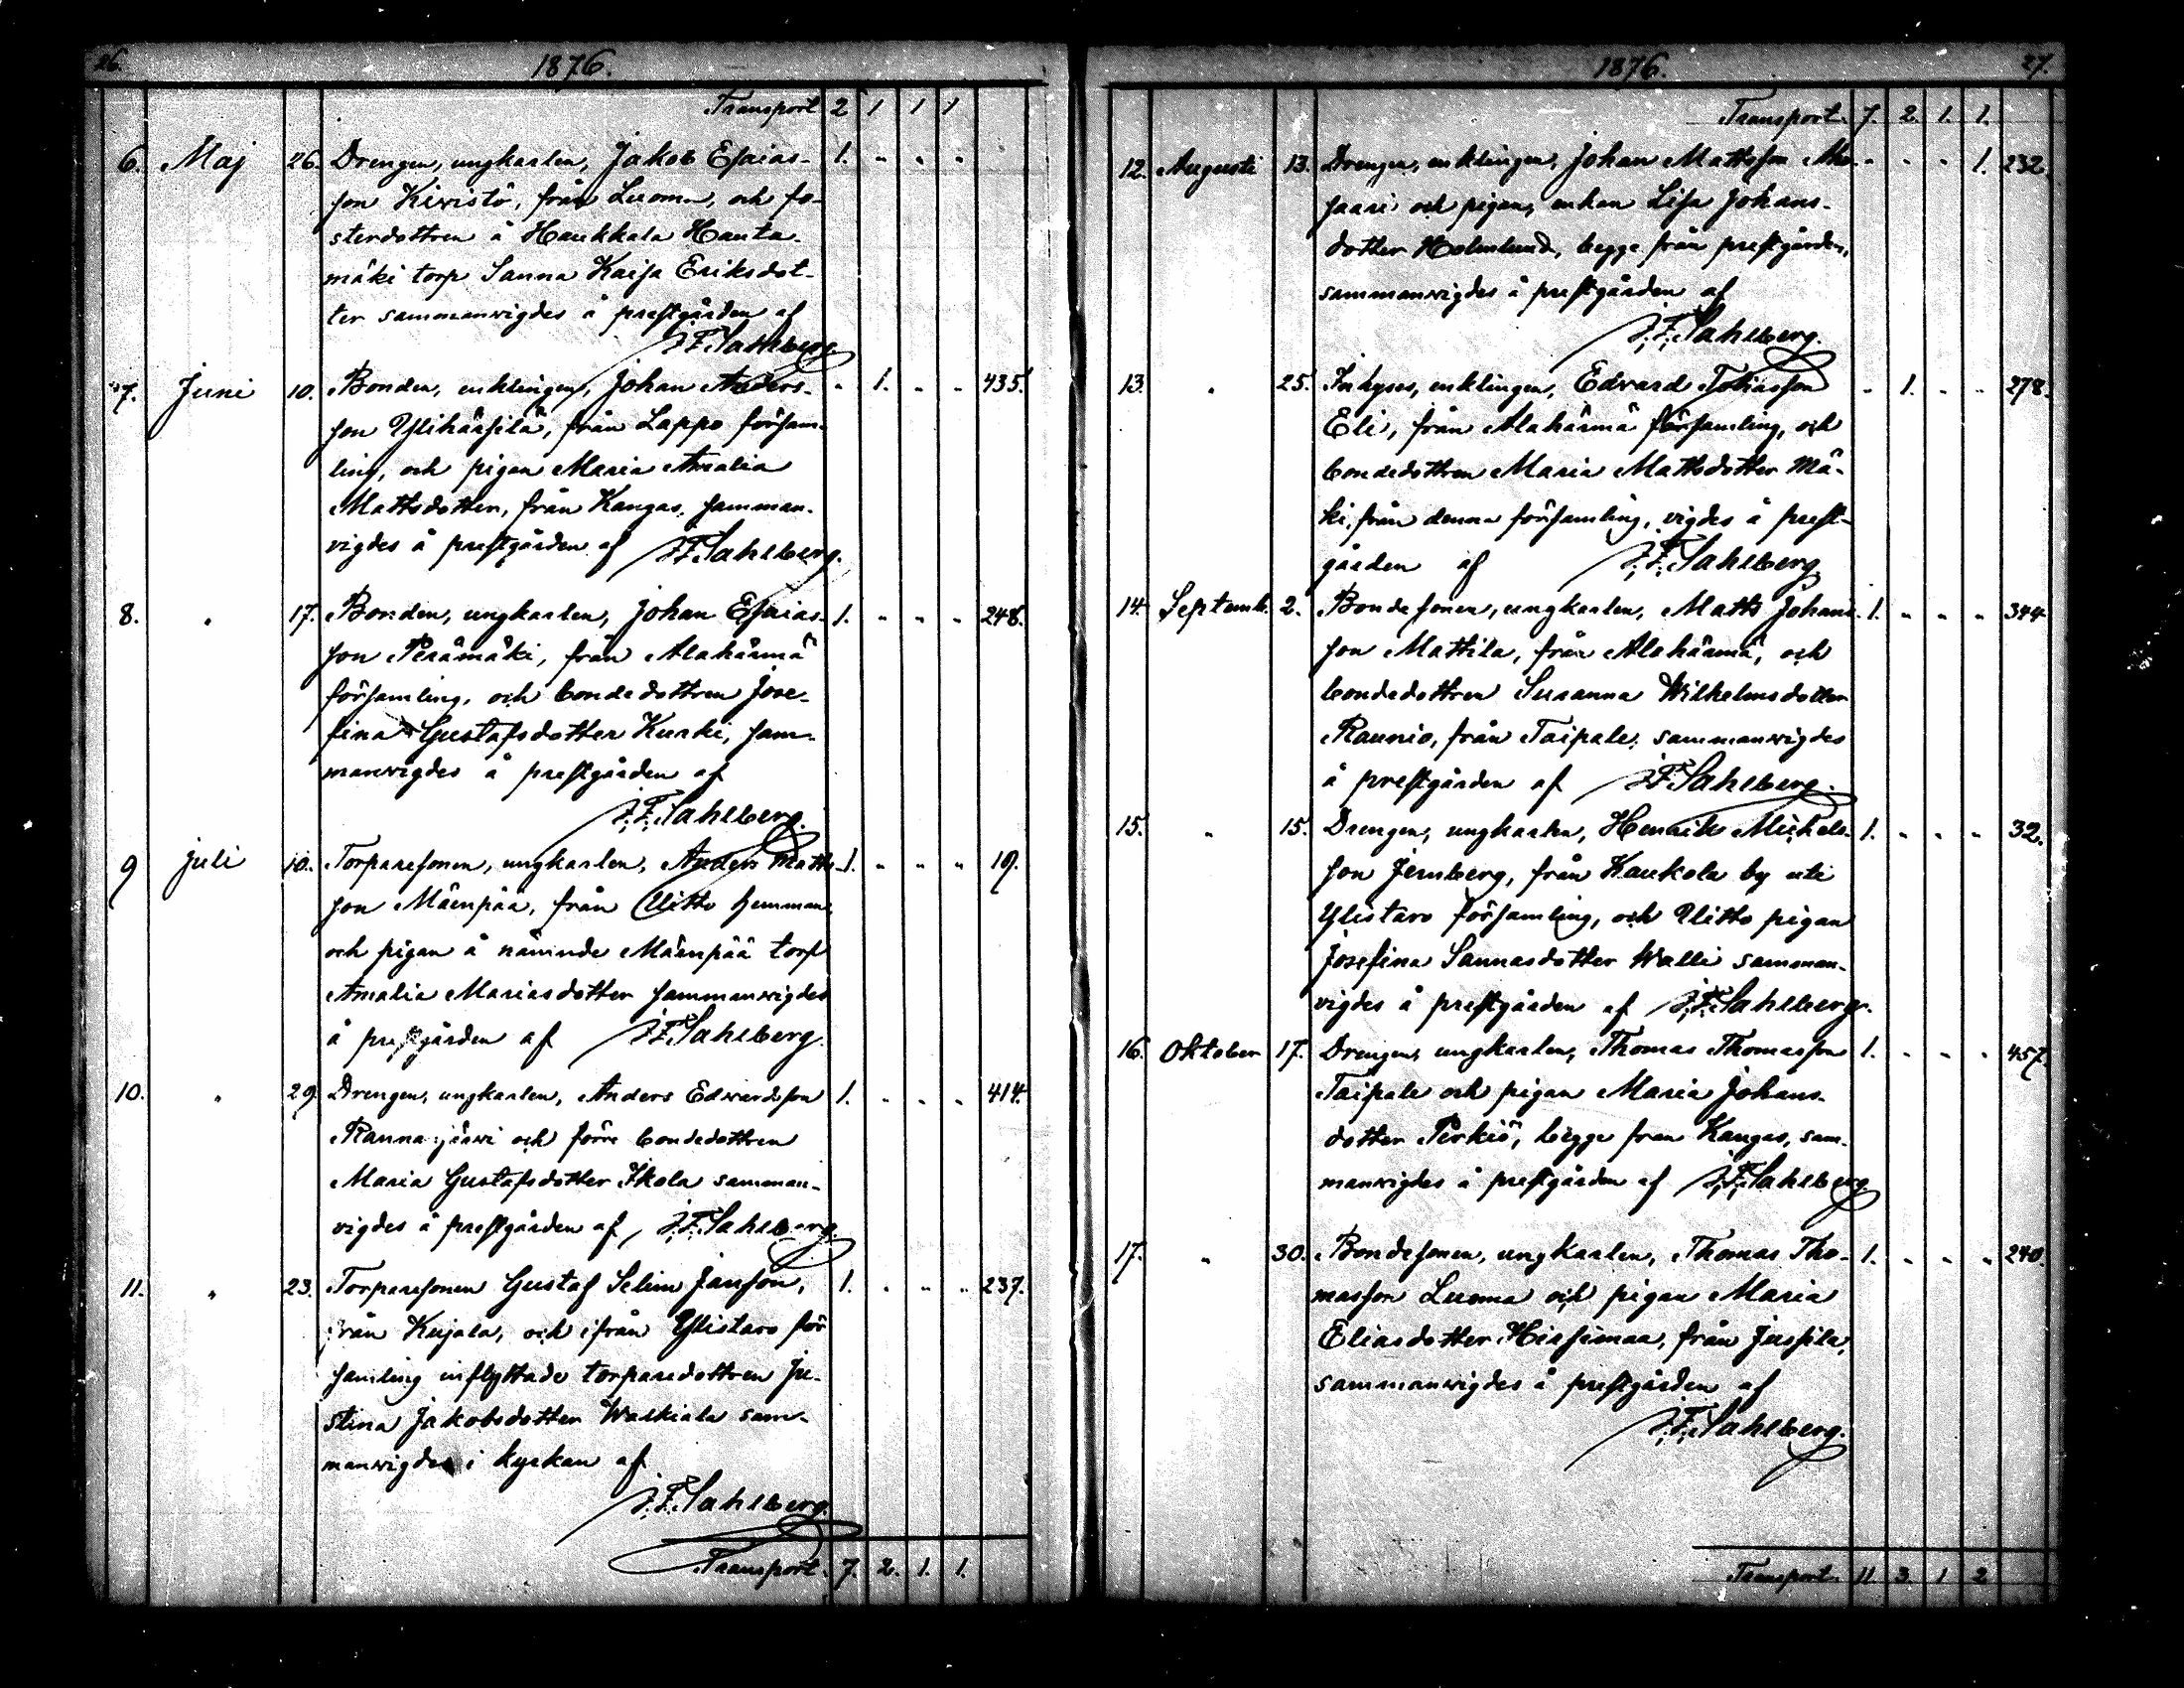 26. 1876.
Transport 2 1 1 1
6. Maj 26. Drengen, ungkarlen, Jakob Esaias- 1. " " "
son Kiwistö, från Luoma, och fo-
sterdottren å Haukkala Hauta-
mäki torp Sanna Kaisa Eriksdot-
ter sammanvigdes å prestgården af
J. F. Sahlberg
7. Juni 10. Bonden, enklingen, Johan Anders- " 1. " " 435.
son Ylihärsilä, från Lappo försam-
ling, och pigan Maria Amalia
Mattsdotter, från Kangas, samman-
vigdes å prestgården af J. F. Sahlberg.
8. " 17. Bonden, ungkarlen, Johan Esaias- 1. " " " 248.
son Perämäki, från Alahärmä
församling, och bondedottren Jose-
fina Gustafsdotter Kurki, sam-
manvigdes å prestgården af
J. F. Sahlberg.
9 juli 10. Torparesonen, ungkarlen, Anders Matts- 1. " " " 19.
son Mäenpää, från Ulitto hemman,
och pigan å nämnde Mäenpää torp
Amalia Mariasdotter sammanvigdes
å prestgården af J. F. Sahlberg.
10. " 29 Drengen, ungkarlen, Anders Edwardsson 1. " " " 414.
Rannajärwi och förre bondedottren
Maria Gustafsdotter Ikola samman-
vigdes å prestgården af J. F. Sahlberg.
11. " 23. Torparesonen Gustaf Selim Jansson, 1. " " " 237.
från Kujala, och ifrån Ylistaro för
samling inflyttade torparedottren Ju-
stina Jakobsdotter Walkiala sam-
manvigdes i kyrkan af
J. F. Sahlberg.
Transport. 7. 2. 1. 1.
1876. 27.
Transport. 7. 2. 1. 1.
12. Augusti 13. Drengen, enklingen, Johan Mattsson - " " 1. 232.
saari och pigan, enkan Lisa Johans-
dotter Holmlund, begge från prestgården,
sammanvigdes å prestgården af
J. F. Sahlberg.
13. " 25. Inhyses, enklingen, Edvard Tobiasson " 1. " " 278.
Eli, från Alahärmä församling, och
bondedottren Maria Mattsdotter Mä-
ki, från denna församling, vigdes å prest-
gården af J. F. Sahlberg
14. Septemb. 2. Bondesonen, ungkarlen, Matts Johans- 1. " " " 344
son Mattila, från Alahärmä, och
bondedottren Susanna Wilhelmsdotter
Raunio, från Taipale, sammanvigdes
å prestgården af J. F. Sahlberg.
15. " 15. Drengen, ungkarlen, Henrik Michels- 1. " " " 32.
son Jernberg, från Kaukola by uti
Ylistaro församling, och Ulitto pigan
Josefina Sannasdotter Walli samman-
vigdes å prestgården af J. F. Sahlberg.
16. Oktober 17. Drengen, ungkarlen, Thomas Thomasson 1. " " " 457.
Taipale och pigan Maria Johans-
dotter Perkiö, begge från Kangas, sam-
manvigdes å prestgården af J. F. Sahlberg.
17. " 30. Bondesonen, ungkarlen, Thomas Tho- 1. " " " 240.
masson Luoma och pigan Maria
Eliasdotter Hirsimaa, från Jussila,
sammanvigdes å prestgården af
J. F. Sahlberg.
Transport 11 3. 1 2